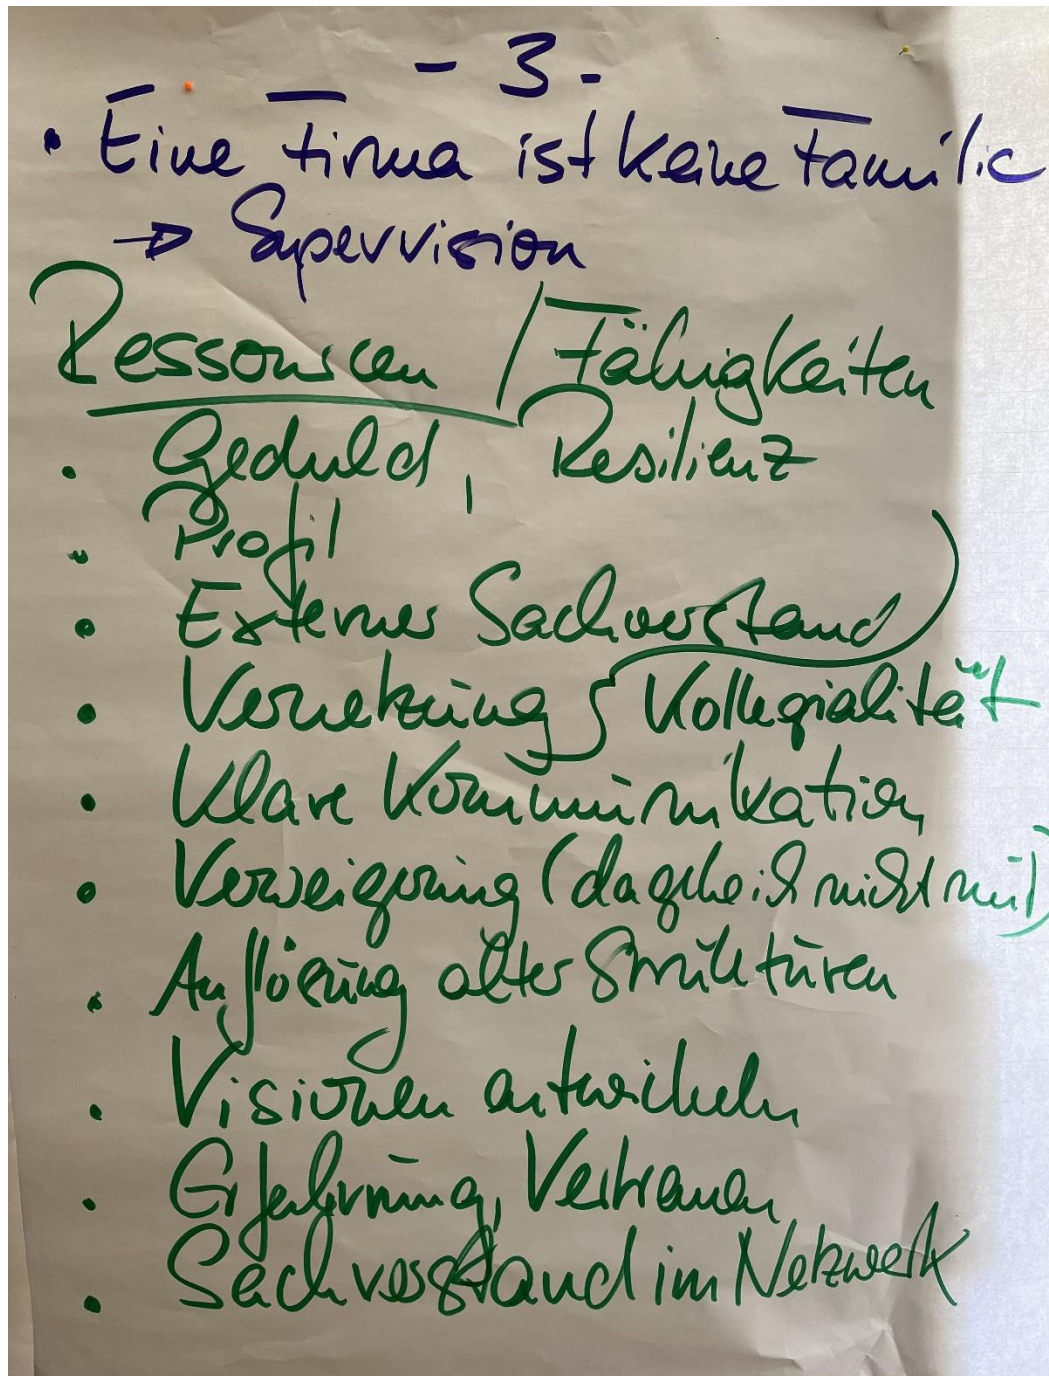 - 3 -
• Eine Firma ist keine Familie
→ Supervision
Ressourcen / Fähigkeiten
• Geduld, Resilienz
• Profil
• Externer Sachverstand
• Vernetzung Kollegialität
• Klare Kommunikation
• Verweigerung (da gehe ich nicht mit)
• Auflösung alter Strukturen
• Visionen entwickeln
• Erfahrung, Vertrauen
• Sachverstand im Netzwerk